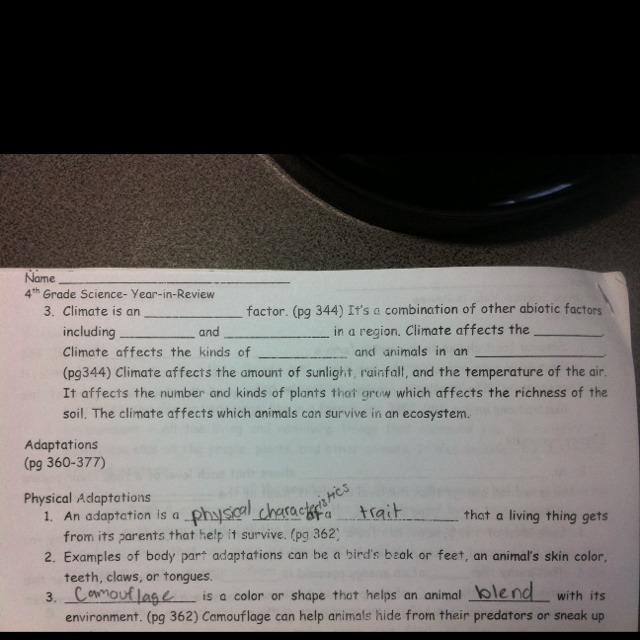 Name ____________________
4th Grade Science- Year-in-Review
3. Climate is an ____________ factor. (pg 344) It's a combination of other abiotic factors
including _________ and _____________ in a region. Climate affects the ________
Climate affects the kinds of ___________ and animals in an ________________.
(pg344) Climate affects the amount of sunlight, rainfall, and the temperature of the air.
It affects the number and kinds of plants that grow which affects the richness of the
soil. The climate affects which animals can survive in an ecosystem.
Adaptations
(pg 360-377)
Physical Adaptations
1. An adaptation is a physical characteristics or a trait that a living thing gets
from its parents that help it survive. (pg 362)
2. Examples of body part adaptations can be a bird's beak or feet, an animal's skin color,
teeth, claws, or tongues.
3. Camouflage is a color or shape that helps an animal blend with its
environment. (pg 362) Camouflage can help animals hide from their predators or sneak up